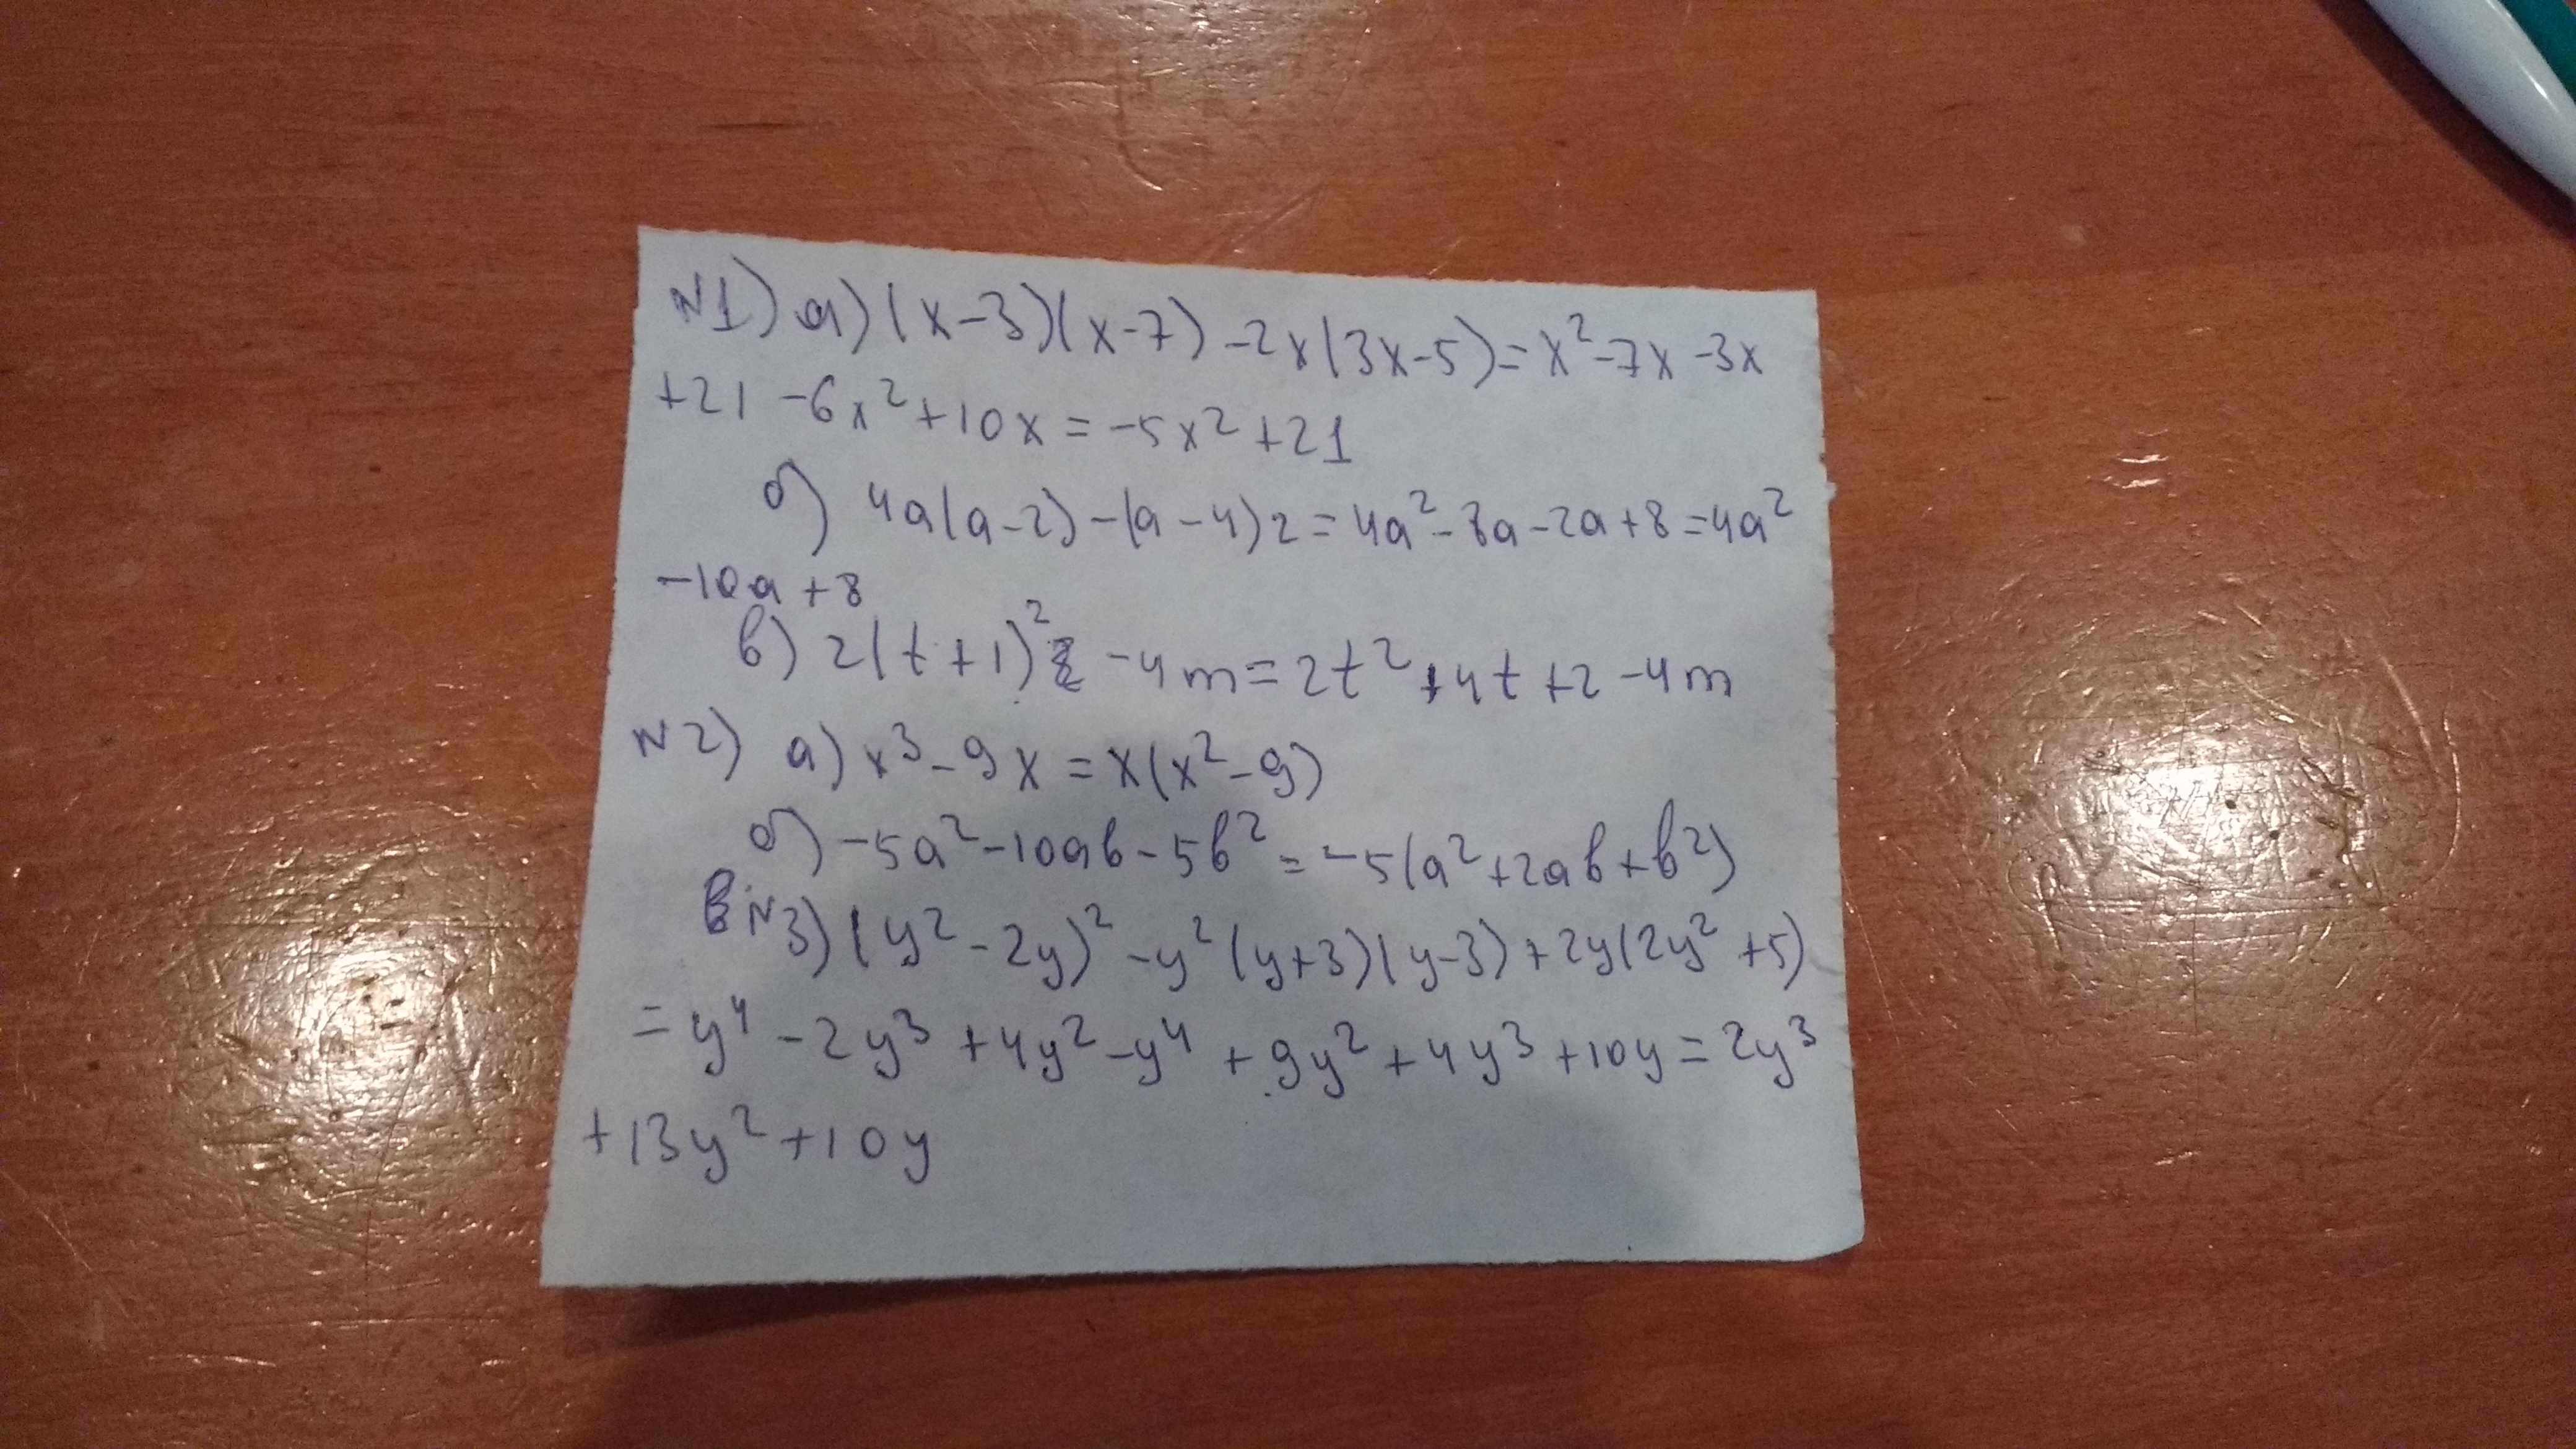 N1) а) (x-3)(x-7) -2x(3x-5)= x²-7x -3x
+21 -6x²+10x = -5x²+21
б) 4a(a-2) -(a-4)2 = 4a²-8a-2a+8=4a²
-10a+8
в) 2(t+1)² -4m= 2t²+4t+2-4m
N2) а) x³-9x = x(x²-9)
б) -5a²-10ab-5b² = -5(a²+2ab+b²)
N3) (y²-2y)² -y²(y+3)(y-3)+2y(2y²+5)
= y⁴ -2y³ +4y² -y⁴ +9y² +4y³ +10y = 2y³
+13y²+10y